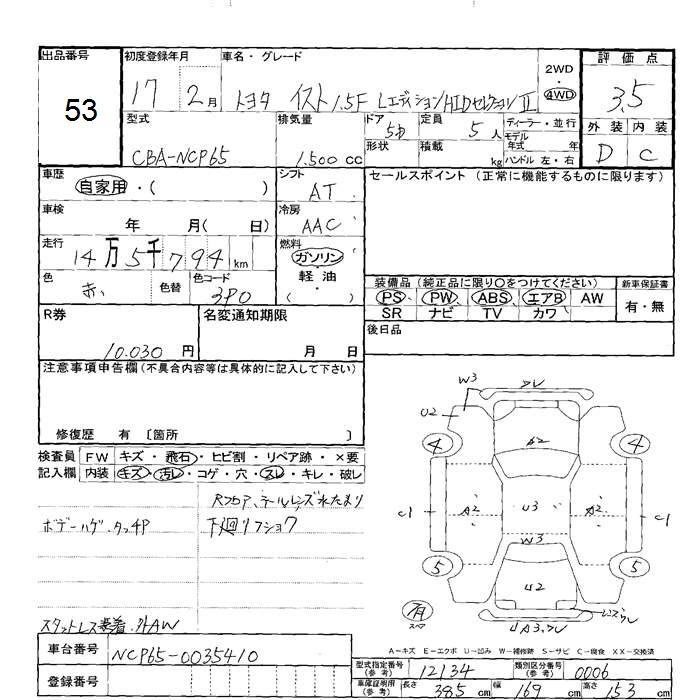 出品番号 初度登録年月 車名・グレード 2WD・4WD 評価点
53 17 2月 トヨタ イスト1.5F LエディションHIDセレクションⅡ 3.5
型式 排気量 ドア 定員 ディーラー・並行 外装 内装
CBA-NCP65 1.500 cc 5d 5人 モデル年式 年 D C
形状 積載 kg ハンドル 左・右
車歴 自家用・( ) シフト AT セールスポイント (正常に機能するものに限ります)
車検 年 月( 日) 冷房 AAC
走行 14万5千794 km 燃料 ガソリン・軽油 ( )
色 赤 色替 色コード 3P0
装備品 (純正品に限り○をつけてください) 新車保証書
PS PW ABS エアB AW 有・無
SR ナビ TV カワ
R券 10.030 円 名変通知期限 月 日 後日品
注意事項申告欄 (不具合内容等は具体的に記入して下さい)
修復歴 有 〔箇所 〕
検査員 FW キズ・飛石・ヒビ割・リペア跡・×要
記入欄 内装 キズ・汚レ・コゲ・穴・スレ・キレ・破レ
Rフロア、テールレンズ水たまり
ボデーハゲ.タッチP 下廻りフショク
スタットレス装着.外AW
W3
U2 A2
4 4
C1 A2 U3 A2 C1
W3
5 5
U2
有 スペア レンズワレ
UA3.ワレ
A-キズ E-エクボ U-凹み W-補修跡 S-サビ C-腐食 XX-交換済
車台番号 NCP65-0035410
登録番号
型式指定番号 (参考) 12134 類別区分番号 (参考) 0006
車庫証明用 (参考) 長さ 385 cm 幅 169 cm 高さ 153 cm